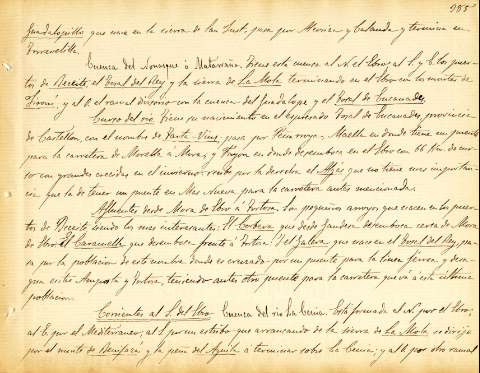 985
Guadalopillo que nace en la sierra de San Just, pasa por Alcorisa y Calanda y termina en
Torrevelilla.
Cuenca del Nonaspe ó Matarraña. Tiene esta cuenca al N. el Ebro, al S. y E. los puer-
tos de Beceite, el Tosal del Rey y la sierra de La Mola terminando en el Ebro en los montes de
y al O. el ramal divisorio con la cuenca del Guadalope y el Tosal de Encanades.
Curso del rio. Tiene su nacimiento en el espresado Tosal de Encanades, provincia
de Castellon, con el nombre de pasa por Peñarroya, Maella en donde tiene un puente
para la carretera de Morella á Mora, y Fayon en donde desemboca en el Ebro con 66 Km. de cur-
so con grandes crecidas en el invierno; recibe por la derecha el Algás que no tiene mas importan-
cia que la de tener un puente en Mas Nueva para la carretera antes mencionada.
Afluentes desde Mora de Ebro á Tortosa. Los pequeños arroyos que nacen en los puer-
tos de Beceite siendo los mas interesantes: El Corbera que desde Gandesa desemboca cerca de Mora
de Ebro. El Caramella que desemboca frente á Tortosa. Y el Galera que nace en el Tosal del Rey, pa-
sa por la poblacion de este nombre donde es cruzado por un puente para la linea férrea y desa-
gua entre Amposta y Tortosa, teniendo antes otro puente para la carretera que vá á esta última
poblacion.
Corrientes al S. del Ebro. Cuenca del rio La Cenia. Está formada al N. por el Ebro;
al E. por el Mediterraneo; al S. por un estribo que arrancando de la sierra de La Mola se dirije
por el monte de Benifazá y la peña del Aguila á terminar sobre La Cenia; y al O. por otro ramal